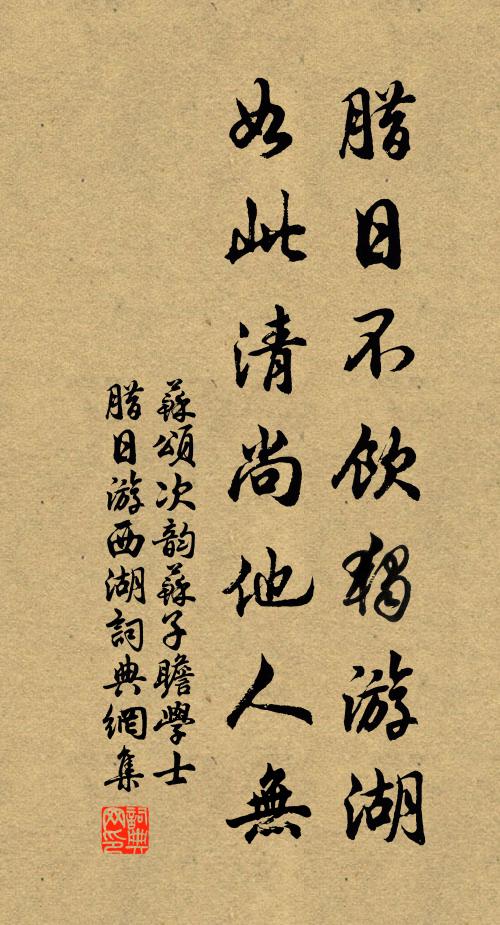 腊日不飲獨游湖
如此清尚他人無
蘇頌次韵蘇子瞻學士
腊日游西湖詞典網集
詞典网印